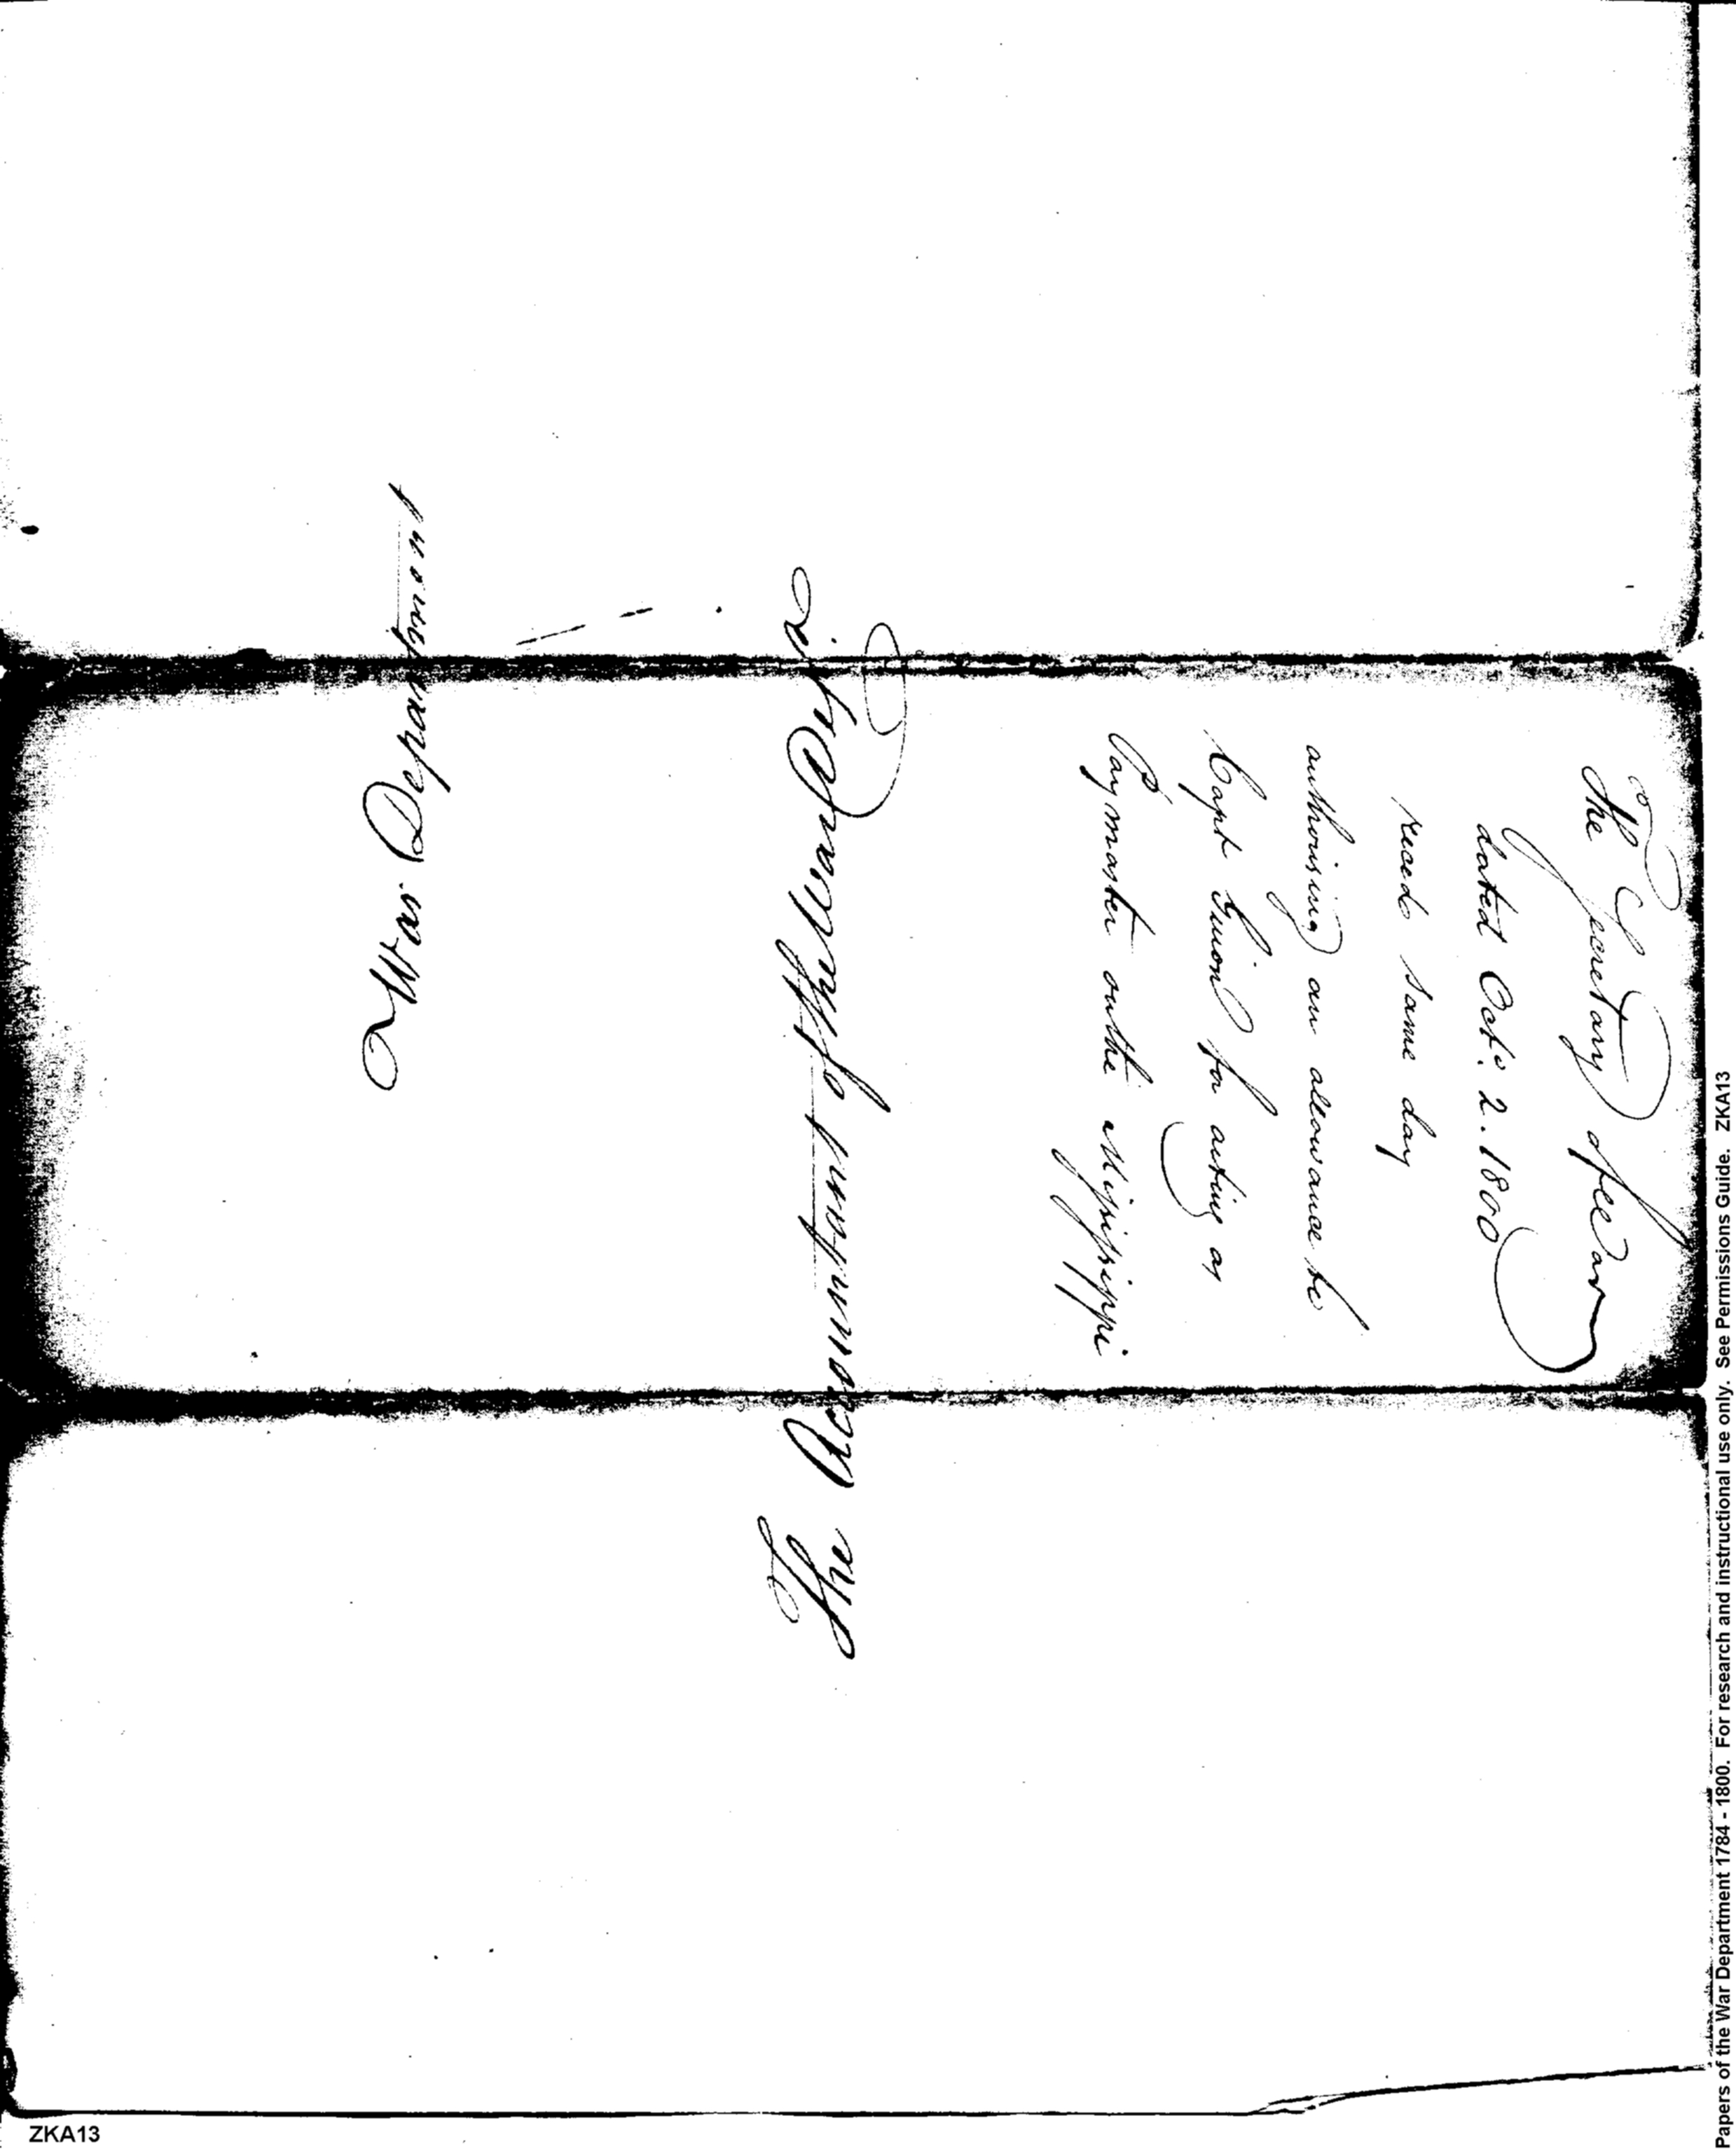 War Department
The Accountant of the War Dept
The Secretary of War
dated Octr. 2. 1800
recd same day
authorising an allowance be
Capt Guion for acting as
Paymaster on the Missisippi
Papers of the War Department 1784 - 1800. For research and instructional use only. See Permissions Guide. ZKA13
ZKA13